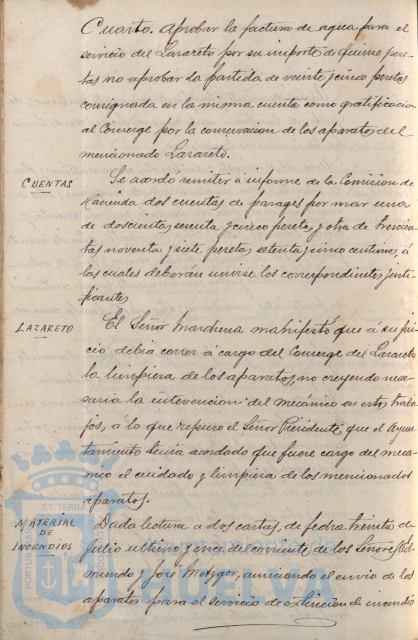 Cuarto. Aprobar la factura de agua para el
servicio del Lazareto por su importe de quince pese-
tas no aprobar la partida de veinte y cinco pesetas
consignada en la misma cuenta como gratificacion
al Conserge por la conservacion de los aparatos del
mencionado Lazareto.
CUENTAS
Se acordó remitir á informe de la Comision de
Hacienda dos cuentas de pasages por mar una
de doscientas sesenta y cinco pesetas y otra de trescien-
tas noventa y siete pesetas setenta y cinco centimos, á
las cuales deberán unirse los correspondientes justi-
ficantes
LAZARETO
El Señor Marchena manifestó que á su jui-
cio debia correr á cargo del Conserge del Lazareto
la limpieza de los aparatos, no creyendo nece-
saria la intervencion del mecánico en estos traba-
jos, á lo que repuso el Señor Presidente, que el Ayun-
tamiento tenia acordado que fuere cargo del meca-
nico el cuidado y limpieza de los mencionados
aparatos.
MATERIAL
DE
INCENDIOS
Dada lectura á dos cartas, de fecha treinta de
Julio ultimo y once del corriente, de los Señores Ed-
mundo y José Metzger, anunciando el envio de los
aparatos para el servicio de extincion de incendios
ET TERRÆ
HUELVA